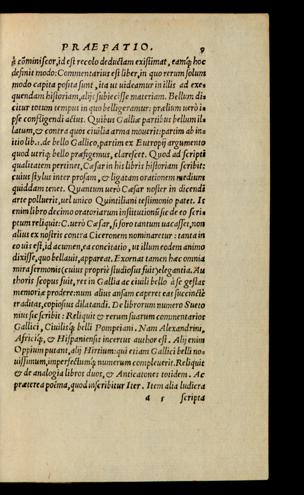 PRAEFATIO. 9
q̃ cõminiscor, id est recolo deductam existimat, eamq́; hoc
definit modo: Commentarius est liber, in quo rerum solum
modo capita posita sunt, ita ut uideamur in illis ad exe
quendam historiam, alijs subiecisse materiam. Bellum di
citur totum tempus in quo belligeramur: prælium uerò i
pse confligendi actus. Quibus Galliæ partibus bellum il
latum, & contra quos ciuilia arma mouerit: partim ab in
itio lib. 1. de bello Gallico, partim ex Eutropij argumento
quod utriq; bello præfigemus, clarescet. Quod ad scripti
qualitatem pertinet, Cæsar in his libris historiam scribit:
cuius stylus inter prosam, & ligatam orationem medium
quiddam tenet. Quantum uerò Cæsar noster in dicendi
arte polluerit, uel unico Quintiliani testimonio patet. Is
enim libro decimo oratoriarum institutionũ sic de eo scri
ptum reliquit: C. uerò Cæsar, si foro tantum uacasset, non
alius ex nostris contra Ciceronem nominaretur: tanta in
eo uis est, id acumen, ea concitatio, ut illum eodem animo
dixisse, quo bellauit, appareat. Exornat tamen hæc omnia
mira sermonis (cuius propriè studiosus fuit) elegantia. Au
thoris scopus fuit, res in Gallia ac ciuili bello à se gestas
memoriæ prodere: num alius ansam caperet eas succinctè
traditas, copiosius dilatandi. De librorum numero Sueto
nius sic scribit: Reliquit & rerum suarum commentarios
Gallici, Ciuilisq́; belli Pompeiani. Nam Alexandrini,
Africiq́;, & Hispaniensis incertus author est. Alij enim
Oppium putant, alij Hirtium: qui etiam Gallici belli no
uissimum, imperfectumq́; numerum compleuerit. Reliquit
& de analogia libros duos, & Anticatones totidem. Ac
præterea poëma, quod inscribitur Iter. Item alia ludicra
a 5 scripta